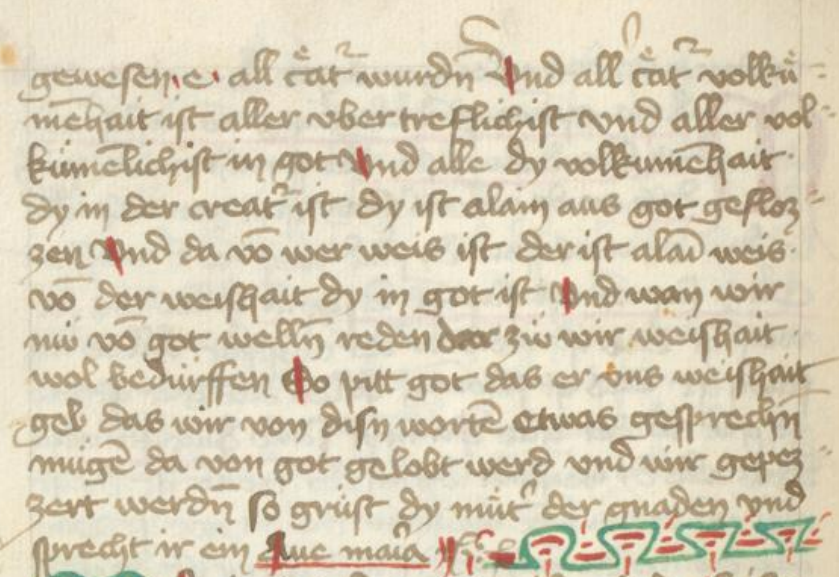 gewesen · e · all c̄eatᷣ wurdn̄ Vnd all c̄eatᷣ volkū=
mēhait ist aller vbertreflichist vnd aller vol=
kūmēlichist in got Vnd alle dy volkumēhait
dy in der creatᷣ ist dy ist alain aus got gefloz=
zen Vnd da vō wer weis ist der ist alaī weis
vō der weishait dy in got ist Vnd wan wir
nu vō got welln̄ reden dar zu wir weishait
wol bedurffen So pitt got das er vns weishait
geb das wir von disn worten̄ etwas gesprechn̄
mügē da von got gelobt werd vnd wir gepez=
zert werdn̄ so grüst dy mütᷣ der gnaden vnd
sprecht ir ein Aue maīa